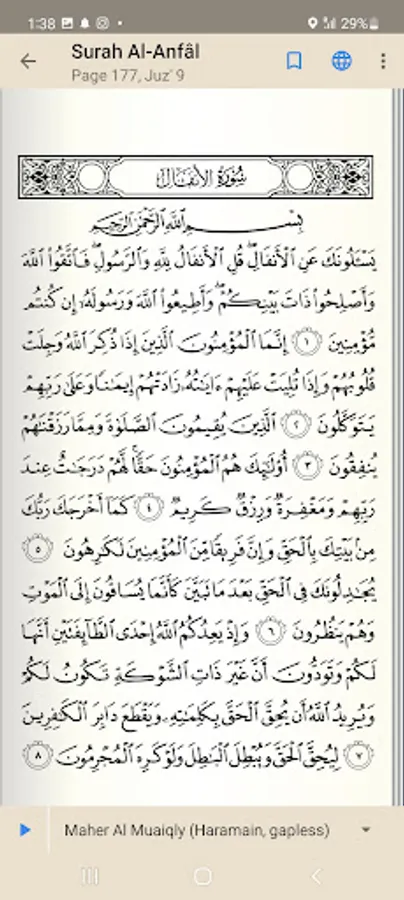 1:38 29%
Surah Al-Anfâl
Page 177, Juz' 9
سُورَةُ الأَنفَالِ
بِسْمِ اللَّهِ الرَّحْمَٰنِ الرَّحِيمِ
يَسْـَٔلُونَكَ عَنِ ٱلْأَنفَالِ ۖ قُلِ ٱلْأَنفَالُ لِلَّهِ وَٱلرَّسُولِ ۖ فَٱتَّقُوا۟ ٱللَّهَ
وَأَصْلِحُوا۟ ذَاتَ بَيْنِكُمْ ۖ وَأَطِيعُوا۟ ٱللَّهَ وَرَسُولَهُۥٓ إِن كُنتُم
مُّؤْمِنِينَ ١ إِنَّمَا ٱلْمُؤْمِنُونَ ٱلَّذِينَ إِذَا ذُكِرَ ٱللَّهُ وَجِلَتْ
قُلُوبُهُمْ وَإِذَا تُلِيَتْ عَلَيْهِمْ ءَايَٰتُهُۥ زَادَتْهُمْ إِيمَٰنًا وَعَلَىٰ رَبِّهِمْ
يَتَوَكَّلُونَ ٢ ٱلَّذِينَ يُقِيمُونَ ٱلصَّلَوٰةَ وَمِمَّا رَزَقْنَٰهُمْ
يُنفِقُونَ ٣ أُو۟لَٰٓئِكَ هُمُ ٱلْمُؤْمِنُونَ حَقًّا ۚ لَّهُمْ دَرَجَٰتٌ عِندَ
رَبِّهِمْ وَمَغْفِرَةٌ وَرِزْقٌ كَرِيمٌ ٤ كَمَآ أَخْرَجَكَ رَبُّكَ
مِنۢ بَيْتِكَ بِٱلْحَقِّ وَإِنَّ فَرِيقًا مِّنَ ٱلْمُؤْمِنِينَ لَكَٰرِهُونَ ٥
يُجَٰدِلُونَكَ فِى ٱلْحَقِّ بَعْدَ مَا تَبَيَّنَ كَأَنَّمَا يُسَاقُونَ إِلَى ٱلْمَوْتِ
وَهُمْ يَنظُرُونَ ٦ وَإِذْ يَعِدُكُمُ ٱللَّهُ إِحْدَى ٱلطَّآئِفَتَيْنِ أَنَّهَا
لَكُمْ وَتَوَدُّونَ أَنَّ غَيْرَ ذَاتِ ٱلشَّوْكَةِ تَكُونُ لَكُمْ
وَيُرِيدُ ٱللَّهُ أَن يُحِقَّ ٱلْحَقَّ بِكَلِمَٰتِهِۦ وَيَقْطَعَ دَابِرَ ٱلْكَٰفِرِينَ
٧ لِيُحِقَّ ٱلْحَقَّ وَيُبْطِلَ ٱلْبَٰطِلَ وَلَوْ كَرِهَ ٱلْمُجْرِمُونَ ٨
Maher Al Muaiqly (Haramain, gapless)